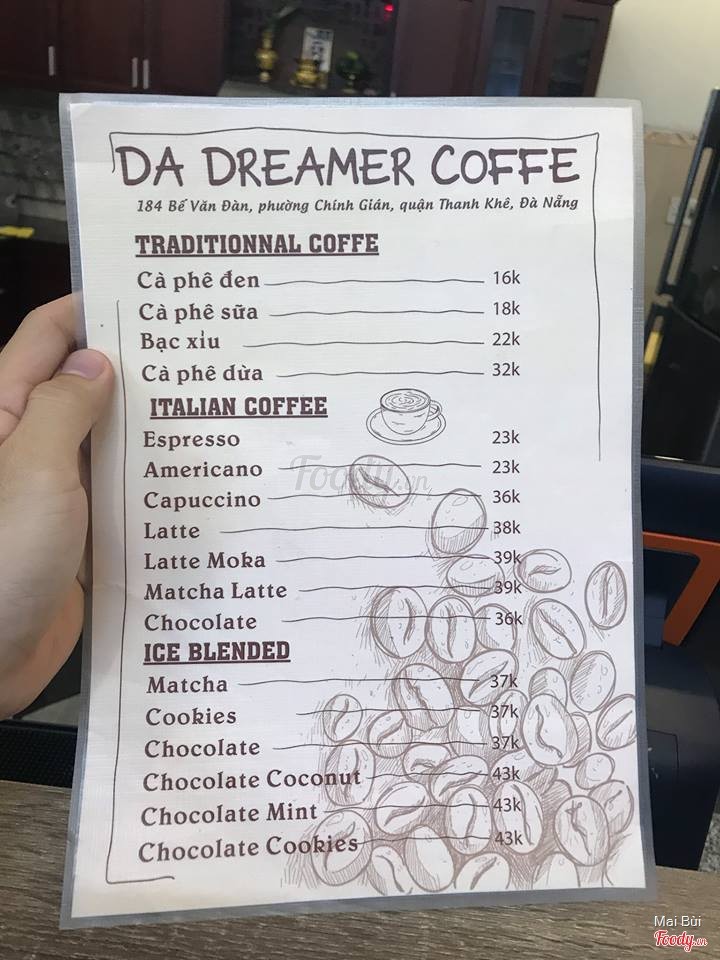 DA DREAMER COFFE
184 Bế Văn Đàn, phường Chính Gián, quận Thanh Khê, Đà Nẵng
TRADITIONNAL COFFE
Cà phê đen 16k
Cà phê sữa 18k
Bạc xỉu 22k
Cà phê dừa 32k
ITALIAN COFFEE
Espresso 23k
Americano 23k
Capuccino 36k
Latte 38k
Latte Moka 39k
Matcha Latte 39k
Chocolate 36k
ICE BLENDED
Matcha 37k
Cookies 37k
Chocolate 37k
Chocolate Coconut 43k
Chocolate Mint 43k
Chocolate Cookies 43k
Foody.vn
Mai Bùi
Foody.vn